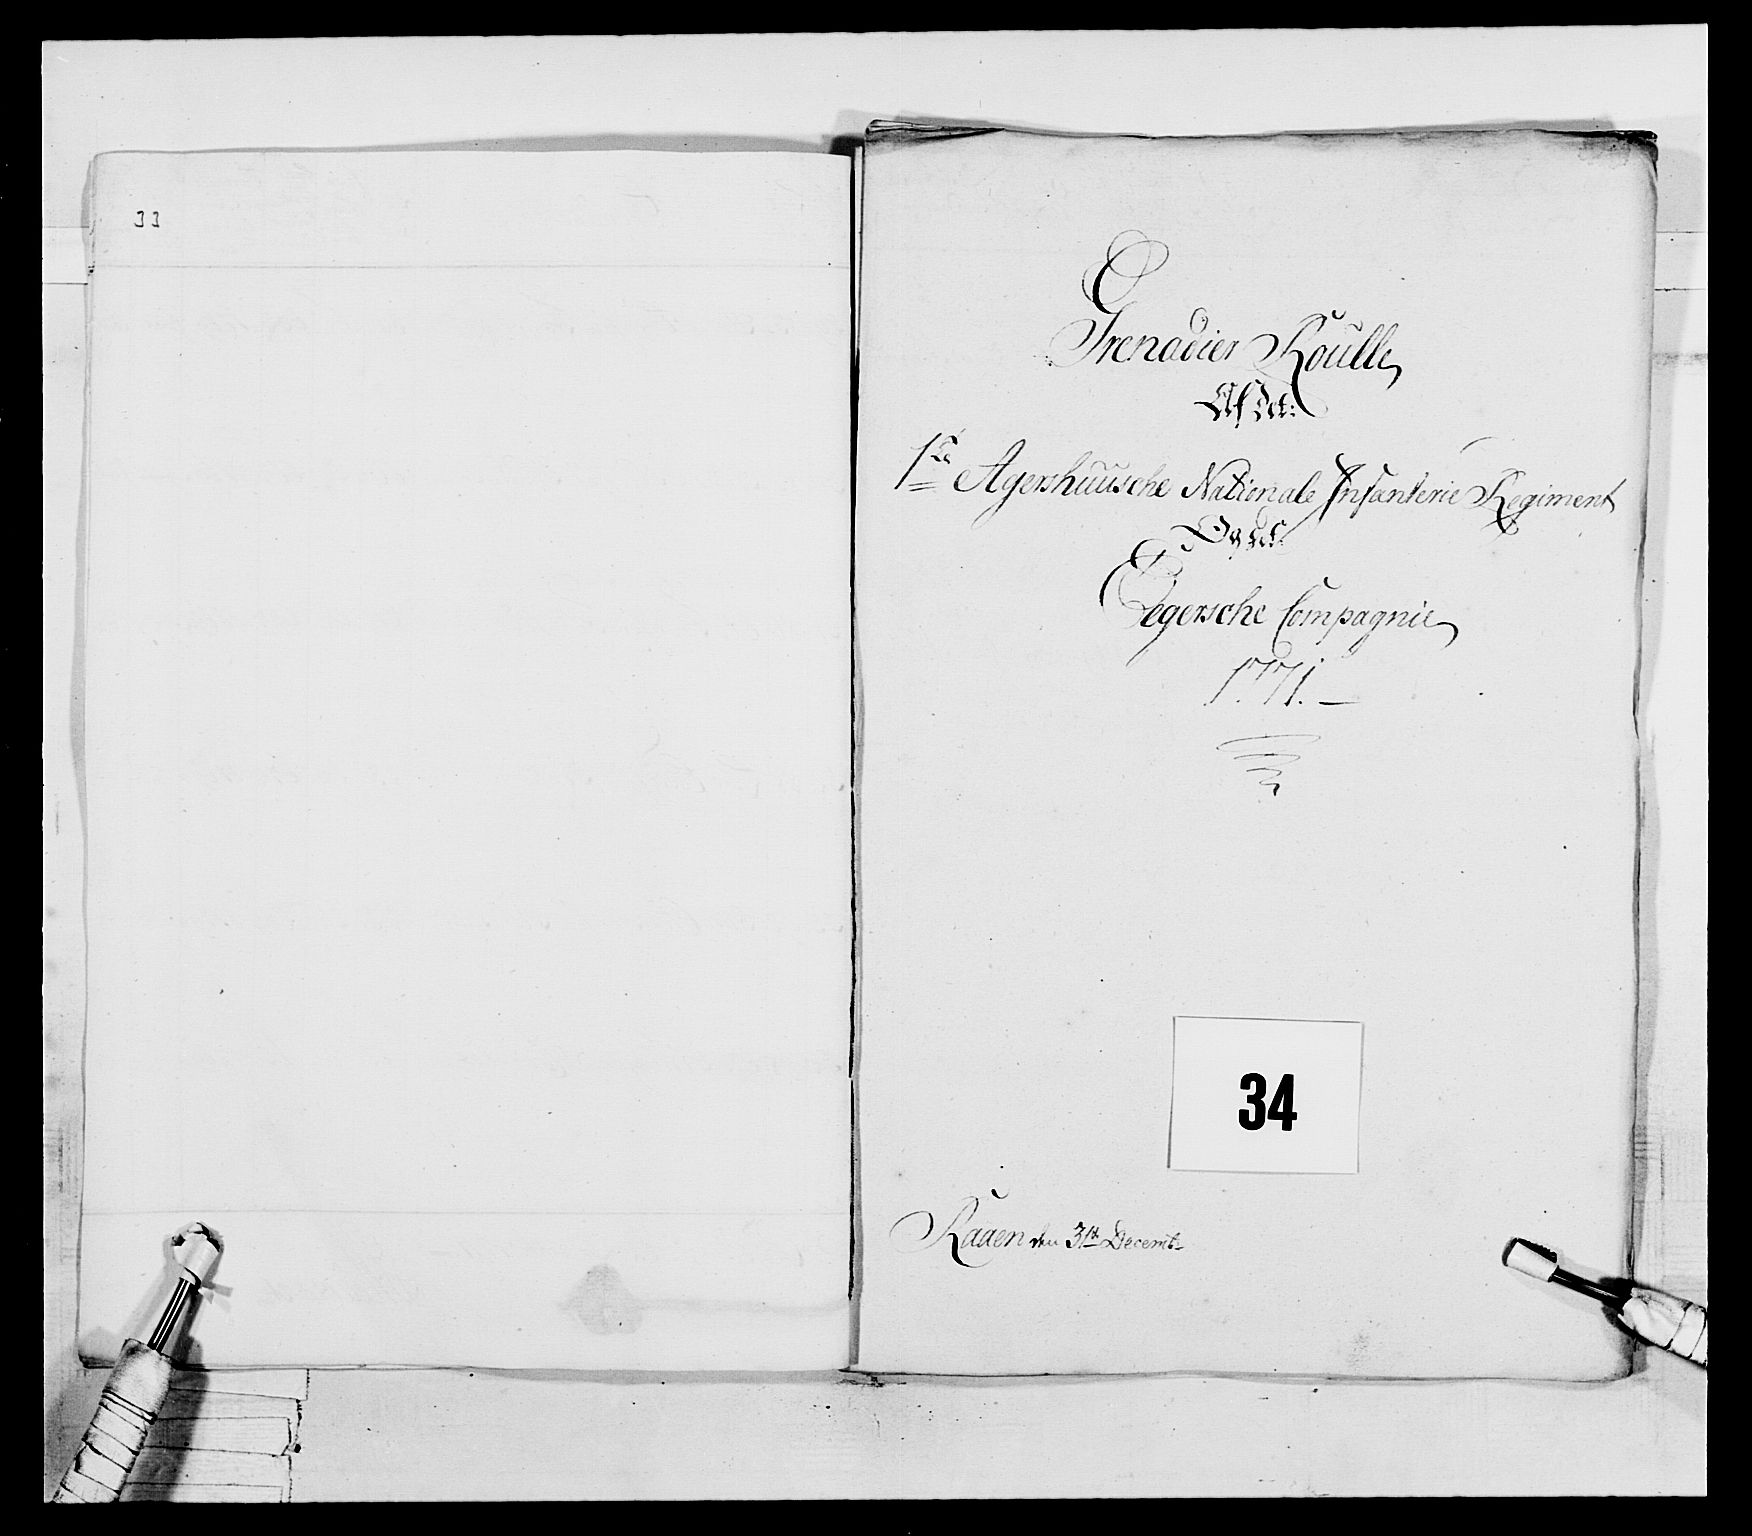 33
Grenadier Roulle
Af Det:
1ste Agershuusche Nationale Infanterie Regiment
Og det
Egersche Compagnie
1771.
34
Raaen den 31te Decemb: